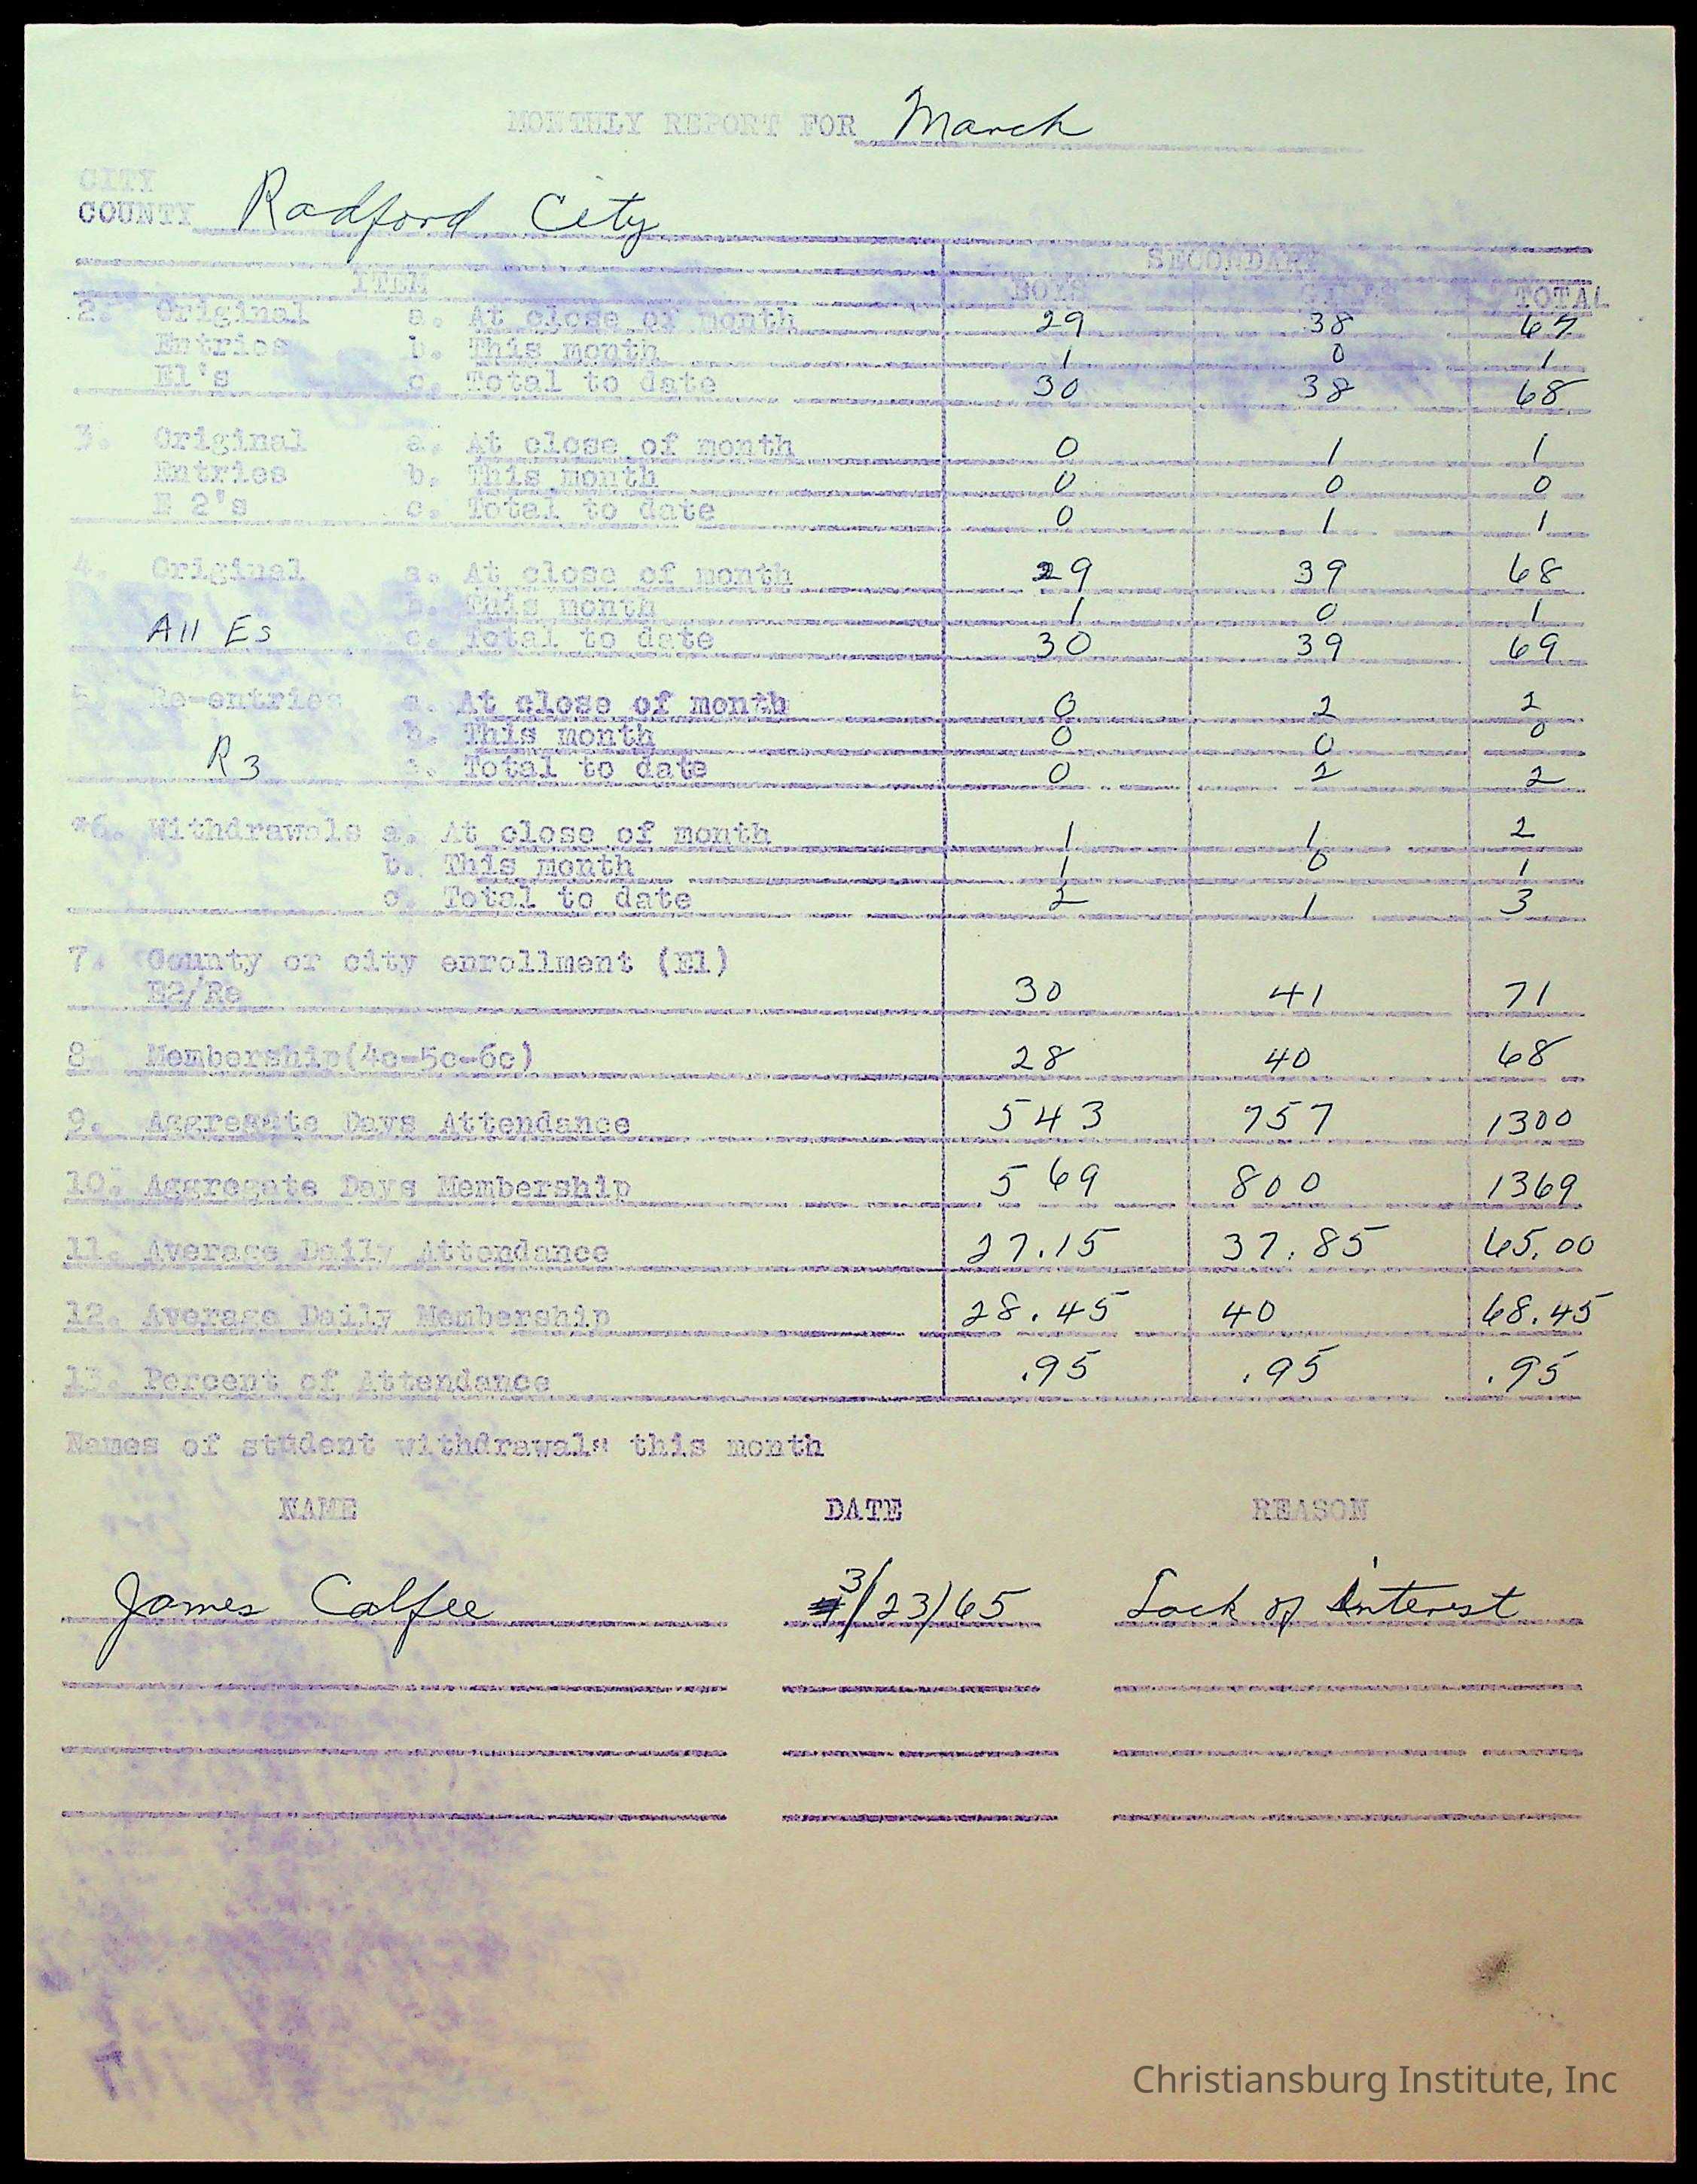 MONTHLY REPORT FOR March
CITY
COUNTY Radford City
SECONDARY
ITEM BOYS GIRLS TOTAL
2. Original a. At close of month 29 38 67
Entries b. This month 1 0 1
E1's c. Total to date 30 38 68
3. Original a. At close of month 0 1 1
Entries b. This month 0 0 0
E 2's c. Total to date 0 1 1
4. Original a. At close of month 29 39 68
b. This month 1 0 1
All Es c. Total to date 30 39 69
5. Re-entries a. At close of month 0 2 2
b. This month 0 0 0
R3 c. Total to date 0 2 2
*6. Withdrawals a. At close of month 1 1 2
b. This month 1 0 1
c. Total to date 2 1 3
7. County or city enrollment (E1)
E2/Re 30 41 71
8 Membership(4c-5c-6c) 28 40 68
9. Aggregate Days Attendance 543 757 1300
10. Aggregate Days Membership 569 800 1369
11. Average Daily Attendance 27.15 37.85 65.00
12. Average Daily Membership 28.45 40 68.45
13. Percent of Attendance .95 .95 .95
Names of student withdrawals this month
NAME DATE REASON
James Calfee 3/23/65 Lack of interest
Christiansburg Institute, Inc